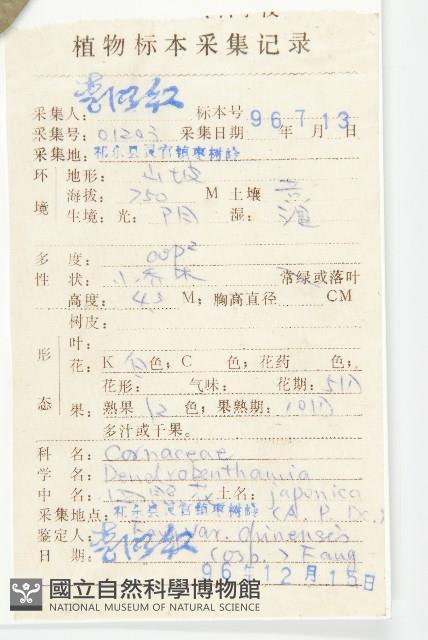 植物标本采集记录
采集人：
标本号
采集号：01203 采集日期 96年7月13日
采集地：
环境
地形：山坡
海拔：750 M 土壤 黄
生境：光：阴 湿：湿
多度：cop²
性状：小乔木 常绿或落叶
高度：4.5 M；胸高直径 CM
树皮：
形态
叶：
花：K 白色；C 色；花药 色；
花形： 气味： 花期：5月
果：熟果 红 色；果熟期：10月
多汁或干果。
科名：Cornaceae
学名：Dendrobenthamia
中名：四照花 土名：japonica
采集地点： (A. P. DC.)
鉴定人： Fang var. chinensis
日期： (Osb.) Fang
96年12月15日
國立自然科學博物館
NATIONAL MUSEUM OF NATURAL SCIENCE